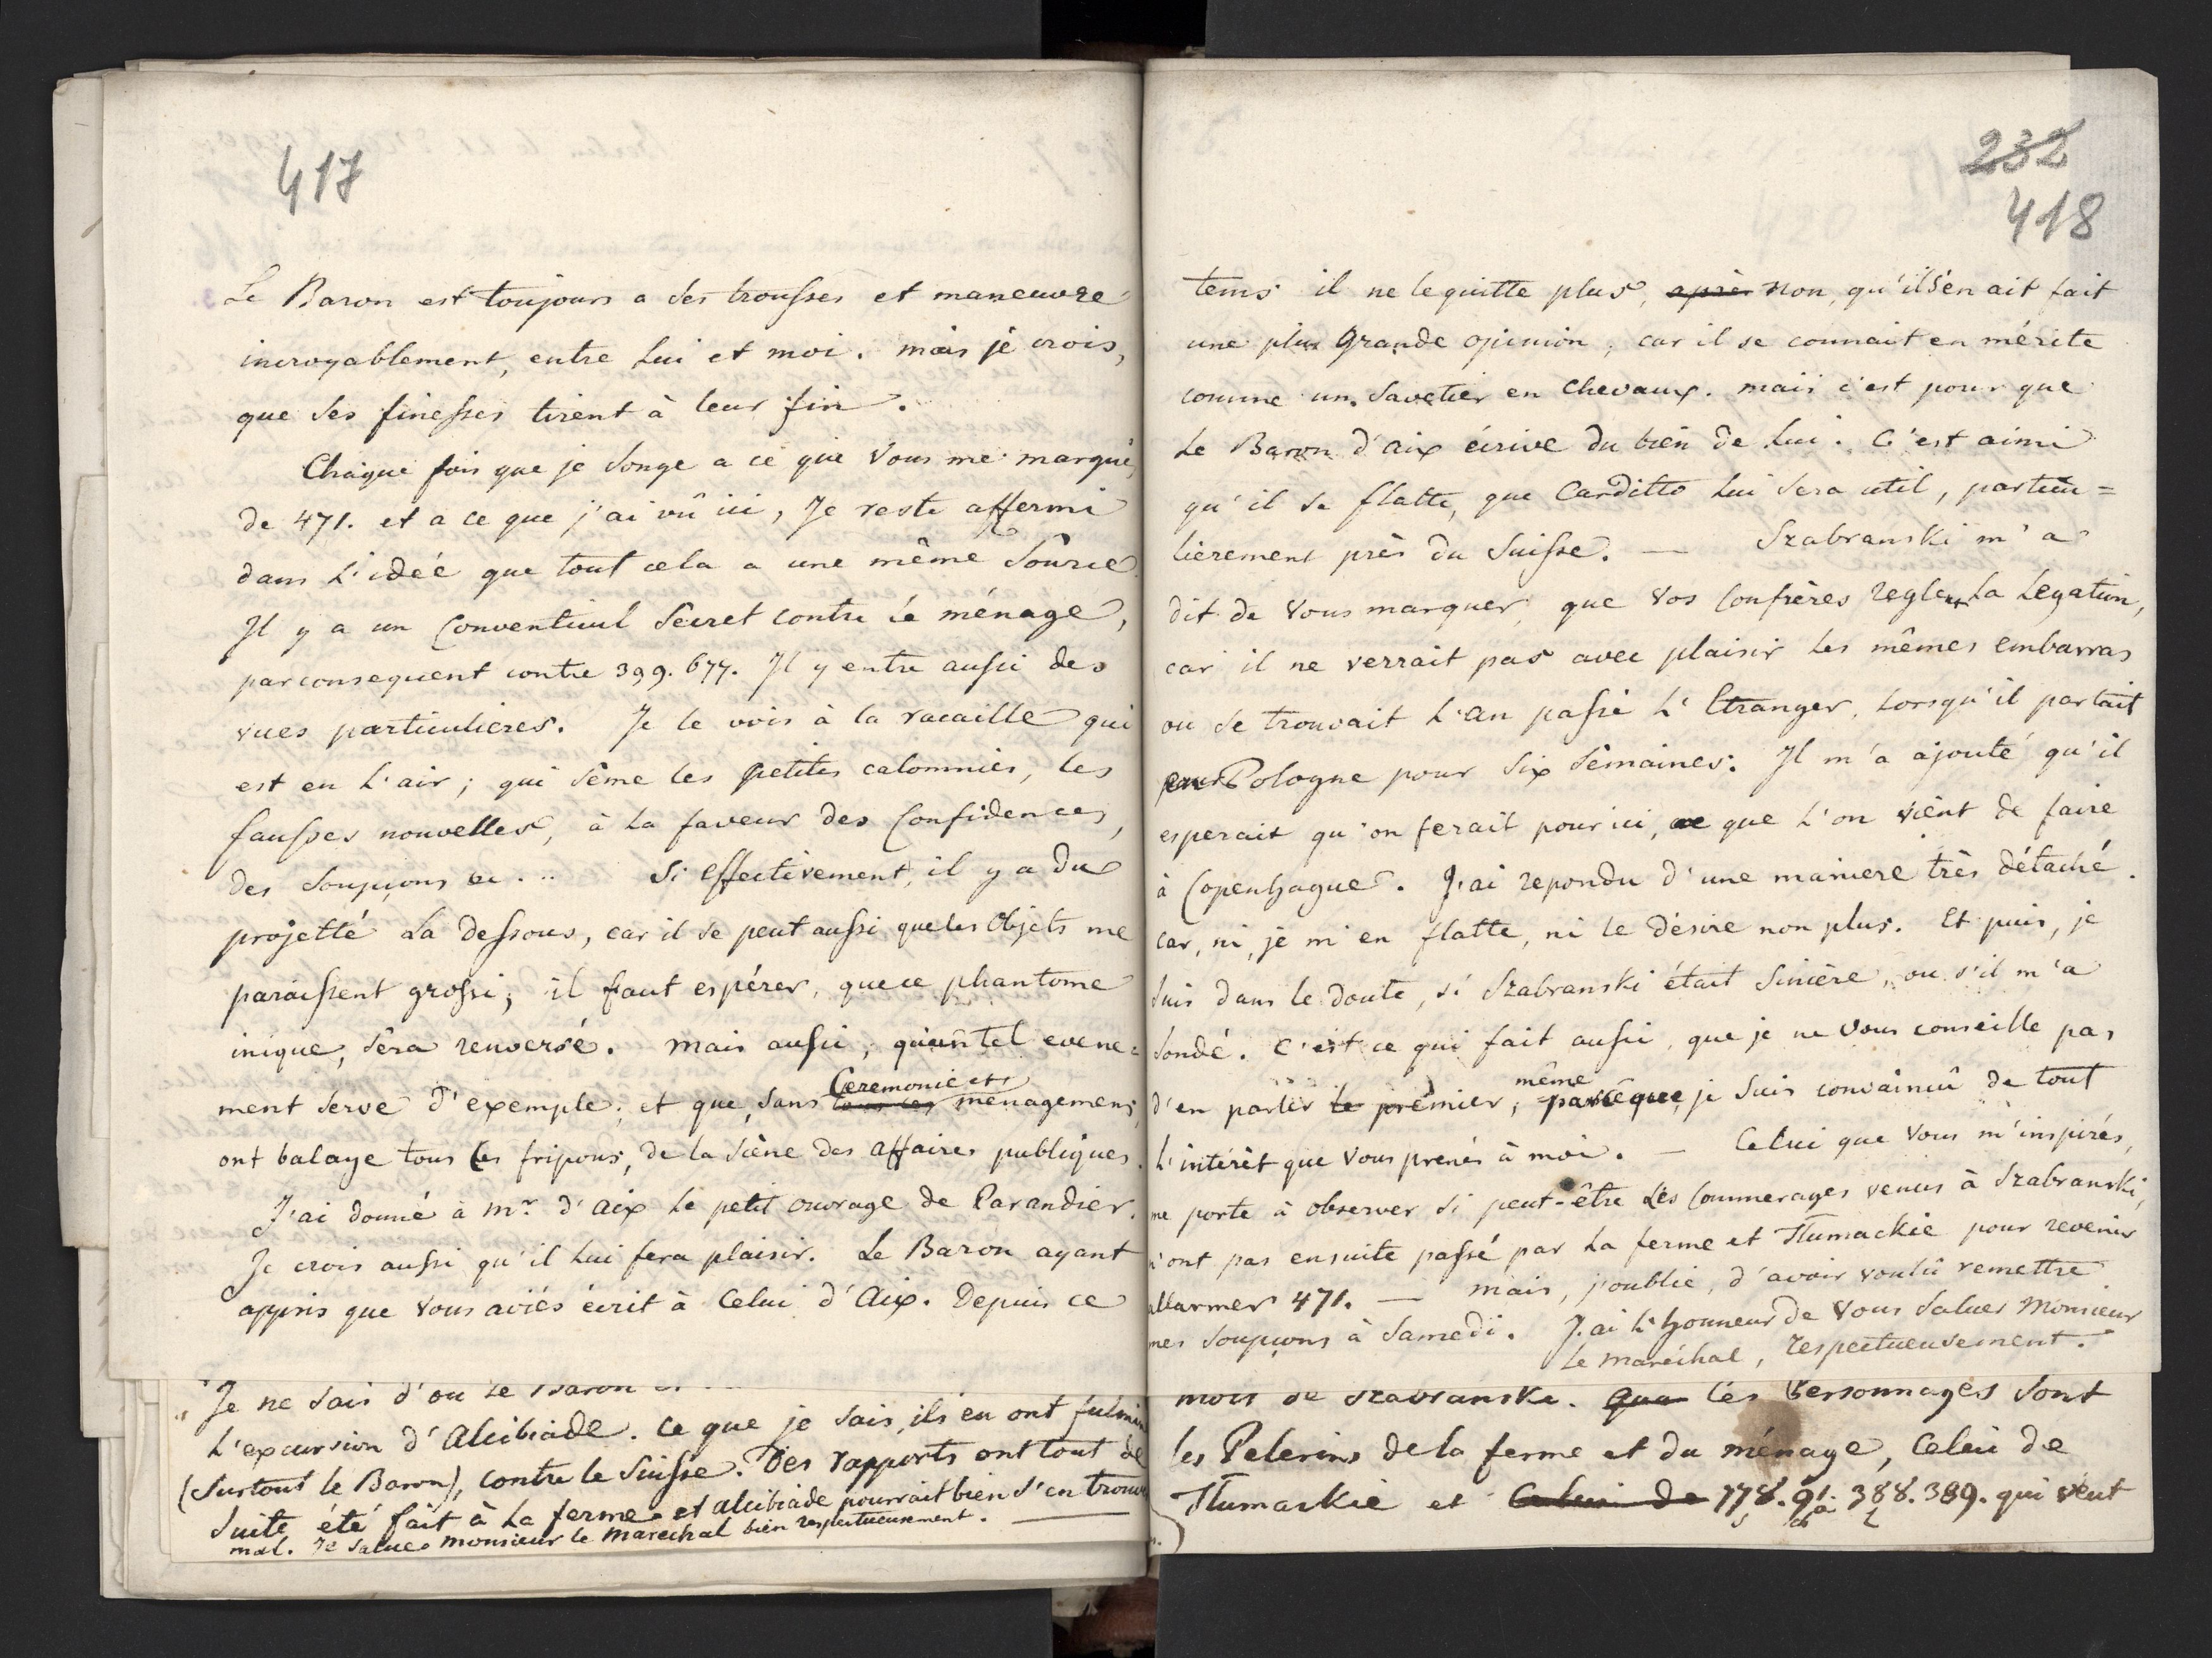 417
Le Baron est toujours a ses trousses et maneuvre
incroyablement, entre Lui et moi. mais je crois,
que ses finesses tirent à leur fin.
Chaque fois que je songe a ce que Vous me marqué,
de 471. et a ce que j'ai vû ici, Je reste affermi
dans L'idée que tout cela a une même Source
Il y a un Conventicul Secret contre Le ménage,
parconsequent contre 399. 677. Il y entre aussi des
vues particulieres. Je le vois à la racaille qui
est en L'air; qui sème les petites calomnies, les
fausses nouvelles, à La faveur des Confidences,
des Soupçons &c... Si effectivement, il y a du
projetté La dessous, car il se peut aussi que les Objets me
paraissent grossi; il faut espérer, que ce phantome
inique, sera renversé. Mais aussi, qu'un tel evene=
ment serve d'exemple; et que, sans tous ces Ceremonie et menagemens,
ont balaye tous les fripons, de la Scène des affaires publiques.
J'ai donné à Mr. d'Aix Le petit ouvrage de Parandier.
Je crois aussi qu'il Lui fera plaisir. Le Baron ayant
appris que Vous aviés écrit à Celui d'Aix. Depuis ce
Je ne sais d'ou Le Baron
L'excursion d'Alcibiade. Ce que je sais, ils en ont fulmin
(Surtout le Baron), contre le Suisse. Des rapports ont tout de
Suite été fait à La ferme et alcibiade pourrait bien s'en trouv
mal. Je salue Monsieur le Marechal bien respectueusement.
232
418
tems il ne le quitte plus, après non, qu'il s'en ait fait
une plus grande opinion, car il se connait en mérite
comme un Savetier en Chevaux. mais c'est pour que
Le Baron d'Aix écrive du bien de Lui. C'est ainsi
qu'il se flatte, que Carditto Lui sera util, particu=
lièrement près du Suisse. — Szabranski m'a
dit de Vous marquer, que Vos Confrères reglent La Legation,
car il ne verrait pas avec plaisir Les mêmes embarras
ou se trouvait L'an passé L'Etranger, Lorsqu'il partait
pour Pologne pour Six Semaines. Il m'a ajouté qu'il
esperait qu'on ferait pour ici, ce que L'on vient de faire
à Copenhague. J'ai repondu d'une maniere très détaché.
Car, ni, je m'en flatte, ni le désire non plus. Et puis, je
suis dans le doute, si Szabranski était Sincère, ou s'il m'a
sondé. C'est ce qui fait aussi, que je ne Vous conseille pas
d'en parler le premier, même parceque je suis convaincû de tout
L'intérêt que Vous prenés à moi. — Celui que Vous m'inspirés,
me porte à observer si peut-être Les Commerages venus à Szabranski,
n'ont pas ensuite passé par La ferme et Tlumackie pour revenir
allarmer 471. — mais, j'oublie, d'avoir voulû remettre
mes soupçons à Samedi. J'ai L'honneur de Vous saluer Monsieur
Le Maréchal, respectueusement.
mois de Szabranski. Que Les Personnages sont
les Pelerins de la ferme et du ménage, Celui de
Tlumackie et Celui de 778. 91. 388. 389. qui veut